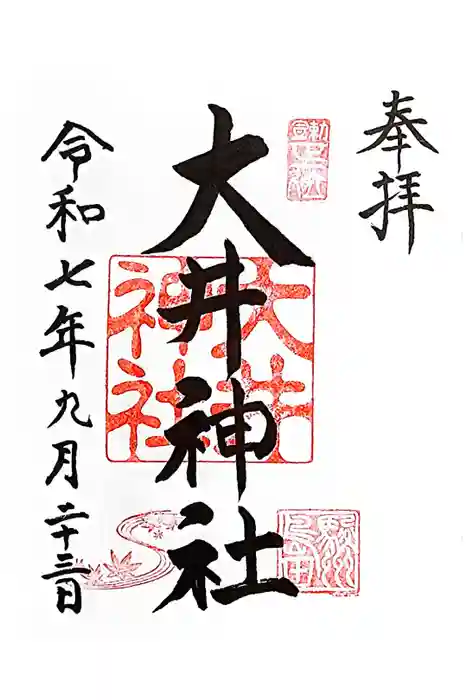 奉拝
大井神社
大井
神社
令和七年九月二十三日